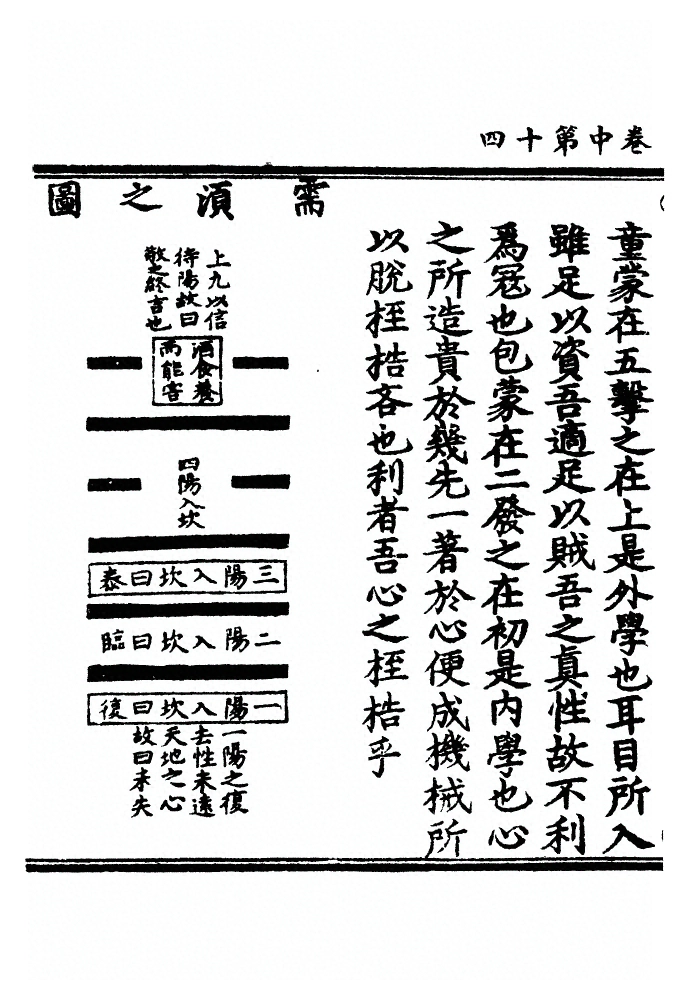 卷中第十四
童蒙在五擊之在上是外學也耳目所入
雖足以資吾適足以賊吾之真性故不利
爲冦也包蒙在二發之在初是内學也心
之所造貴於幾先一著於心便成機械所
以脱桎梏吝也利者吾心之桎梏乎
需湏之圖
上九以信
待陽故曰
敬之終吉也
酒食養
而能害
四陽入坎
三陽入坎曰泰
二陽入坎曰臨
一陽入坎曰復
一陽之復
去性未遠
天地之心
故曰未失